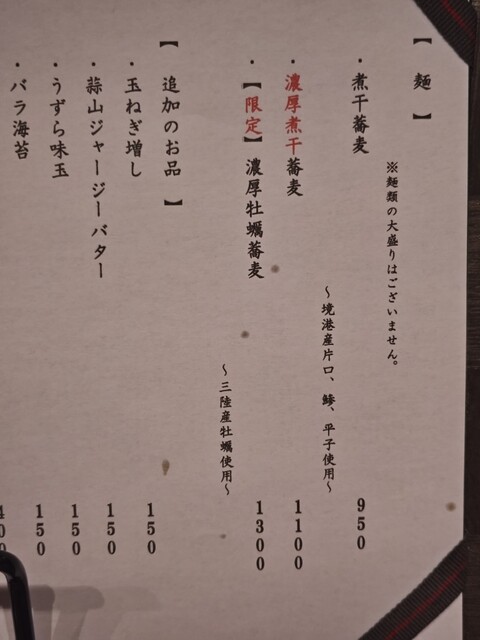 【 麺 】
※麺類の大盛りはございません。
・煮干蕎麦 950
～境港産片口、鯵、平子使用～
・濃厚煮干蕎麦 1100
・【限定】濃厚牡蠣蕎麦 1300
～三陸産牡蠣使用～
【 追加のお品 】
・玉ねぎ増し 150
・蒜山ジャージーバター 150
・うずら味玉 150
・バラ海苔 150